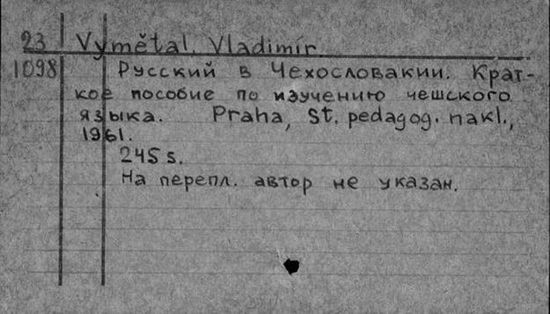 23 Vymětal, Vladimír
1098 Русский в Чехословакии. Крат-
кое пособие по изучению чешского
языка. Praha, St. pedagog. nakl.,
1961.
245 s.
На перепл. автор не указан.